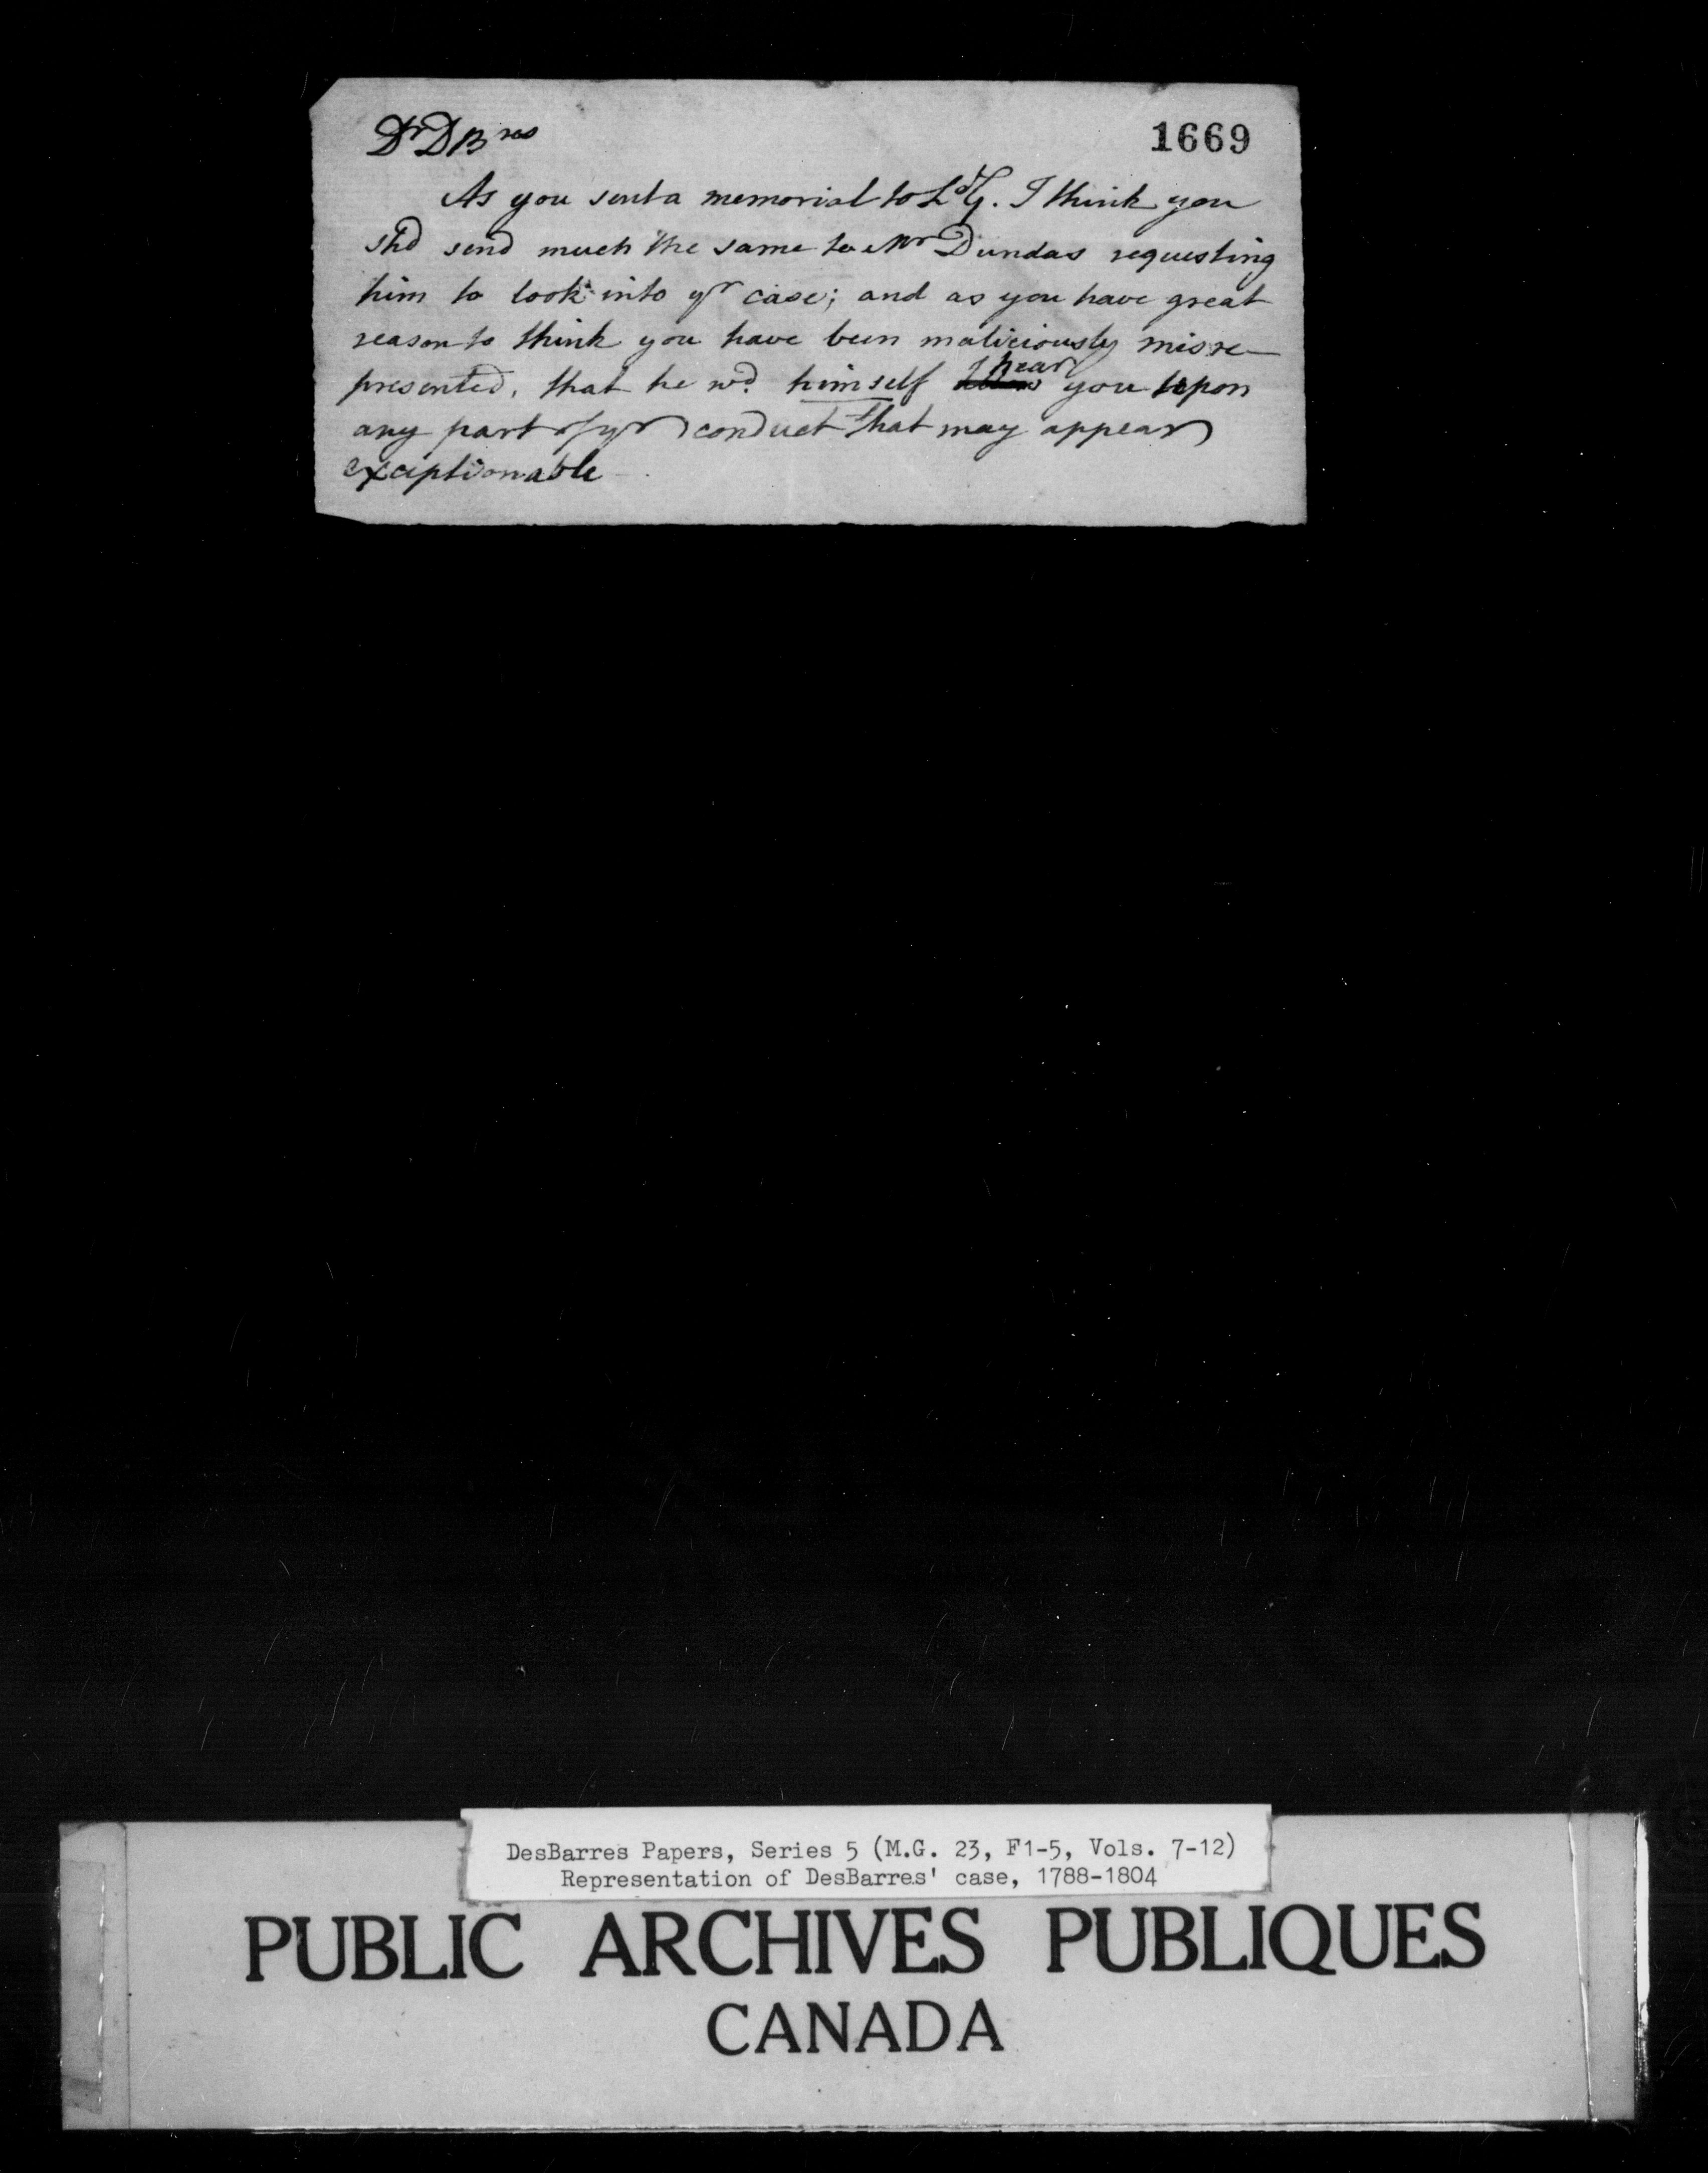 Dr DBres
1669
As you sent a memorial to Ld G. I think you
shd send much the same to Mr Dundas requesting
him to look into yr case; and as you have great
reason to think you have been maliciously misre-
presented, that he wd. himself hear you upon
any part of yr conduct that may appear
exceptionable
DesBarres Papers, Series 5 (M.G. 23, F1-5, Vols. 7-12)
Representation of DesBarres' case, 1788-1804
PUBLIC ARCHIVES PUBLIQUES
CANADA